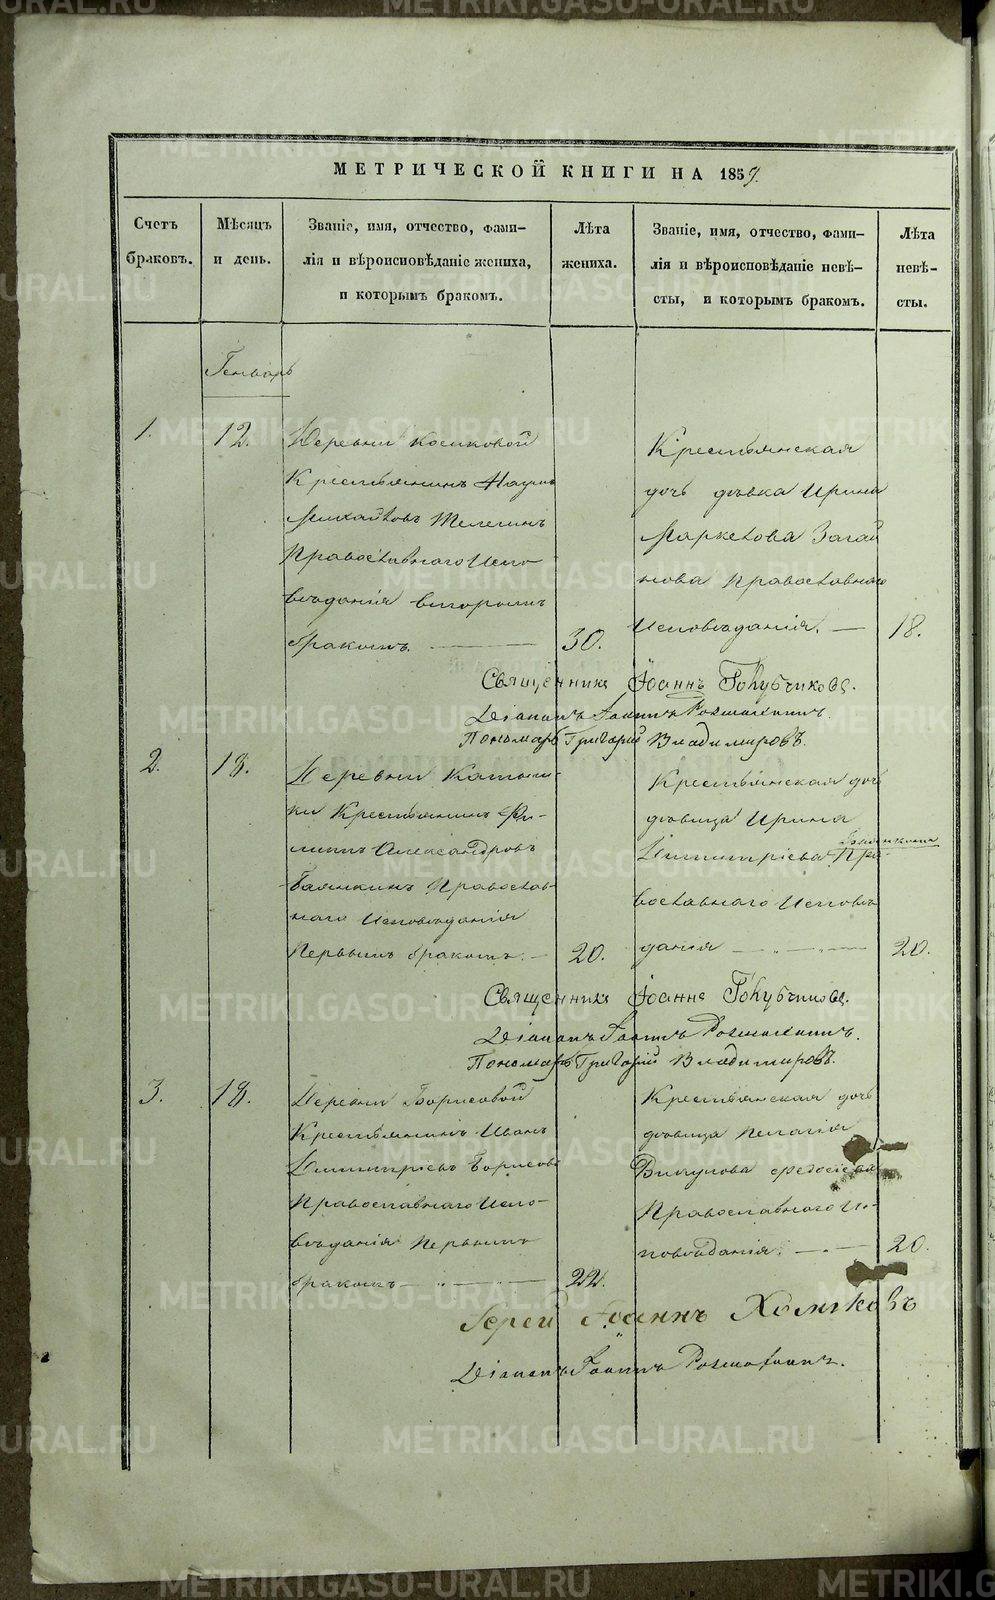 МЕТРИЧЕСКОЙ КНИГИ НА 1859.
Счетъ браковъ.
Мѣсяцъ и день.
Званіе, имя, отчество, фами-
лія и вѣроисповѣданіе жениха,
и которымъ бракомъ.
Лѣта жениха.
Званіе, имя, отчество, фами-
лія и вѣроисповѣданіе невѣ-
сты, и которымъ бракомъ.
Лѣта невѣ-
сты.
Генварь
1.
12.
Деревни Косиковой
Крестьянинъ Наумъ
Михайловъ Телегинъ
Православнаго Испо-
вѣданія вторымъ
бракомъ. —
30.
Крестьянская
дочь дѣвка Ирина
Маркелова Загай
нова Православнаго
Исповѣданія. —
18.
Священникъ Іоаннъ Голубчиковъ.
Діаконъ Іоаннъ
Пономарь Григорій Владимировъ.
2.
18.
Деревни
ки Крестьянинъ Фи-
липпъ Александровъ
Баянкинъ Православ-
наго Исповѣданія
Первымъ бракомъ. —
20.
Крестьянская дочь
дѣвица Ирина
Димитріева Пра-
вославнаго Исповѣ
данія —
20.
Священникъ Іоаннъ Голубчиковъ.
Діаконъ Іоаннъ
Пономарь Григорій Владимировъ.
3.
18.
Деревни Борисовой
Крестьянинъ Иванъ
Димитріевъ Борисовъ
Православнаго Испо-
вѣданія Первымъ
бракомъ —
22.
Крестьянская дочь
дѣвица Пелагія
Викулова Федосіева
Православнаго Ис-
повѣданія. —
20.
Іерей Іоаннъ Хомяковъ
Діаконъ Іоаннъ
METRIKI.GASO-URAL.RU